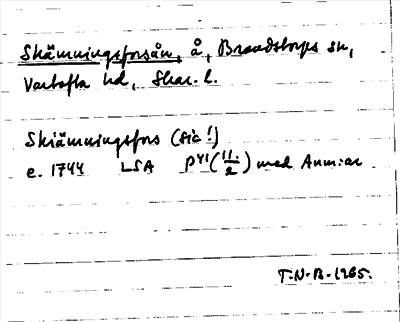 Skämningsforsån, å, Brandstorps sn,
Vartofta hd, Skar. l.
Skiämningsfors (sic!)
e. 1744 LSA P41 (11/2) med Anm:ar
T.N.B. 1965.